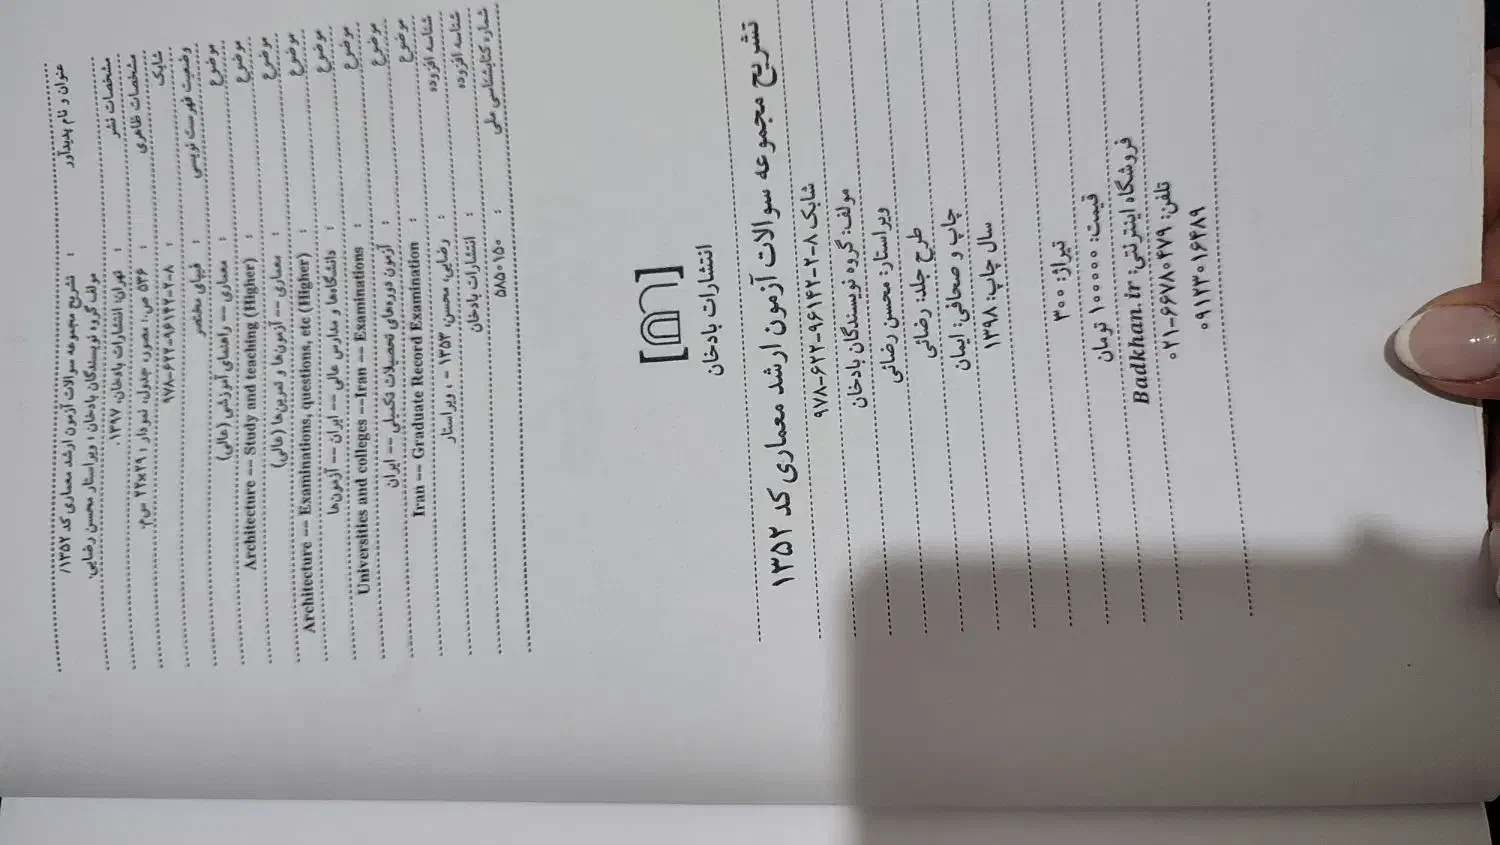 عنوان و نام پدیدآور : تشریح مجموعه سوالات آزمون ارشد معماری کد ۱۳۵۲/
مولف گروه نویسندگان بادخان ؛ ویراستار محسن رضایی.
مشخصات نشر : تهران: انتشارات بادخان، ۱۳۹۷.
مشخصات ظاهری : ۵۳۶ ص.: مصور، جدول، نمودار ؛ ۲۲×۲۹ س‌م.
شابک : ۹۷۸-۶۲۲-۹۶۱۴۲-۲-۸
وضعیت فهرست نویسی : فیپای مختصر
موضوع : معماری -- راهنمای آموزشی (عالی)
موضوع : Architecture -- Study and teaching (Higher)
موضوع : معماری -- آزمون‌ها و تمرین‌ها (عالی)
موضوع : Architecture -- Examinations, questions, etc (Higher)
موضوع : دانشگاه‌ها و مدارس عالی -- ایران -- آزمون‌ها
موضوع : Universities and colleges --Iran -- Examinations
موضوع : آزمون دوره‌های تحصیلات تکمیلی -- ایران
موضوع : Iran -- Graduate Record Examination
شناسه افزوده : رضایی، محسن، ۱۳۵۳ - ، ویراستار
شناسه افزوده : انتشارات بادخان
شماره کتابشناسی ملی : ۵۸۵۰۱۵۰
انتشارات بادخان
تشریح مجموعه سوالات آزمون ارشد معماری کد ۱۳۵۲
شابک ۸-۲-۹۶۱۴۲-۶۲۲-۹۷۸
مولف: گروه نویسندگان بادخان
ویراستار: محسن رضائی
طرح جلد: رضائی
چاپ و صحافی: ایمان
سال چاپ: ۱۳۹۸
تیراژ: ۳۰۰
قیمت: ۱۰۰۰۰۰ تومان
فروشگاه اینترنتی: Badkhan.ir
تلفن: ۶۶۷۸۰۴۷۹-۰۲۱
۰۹۱۲۳۰۱۶۴۸۹